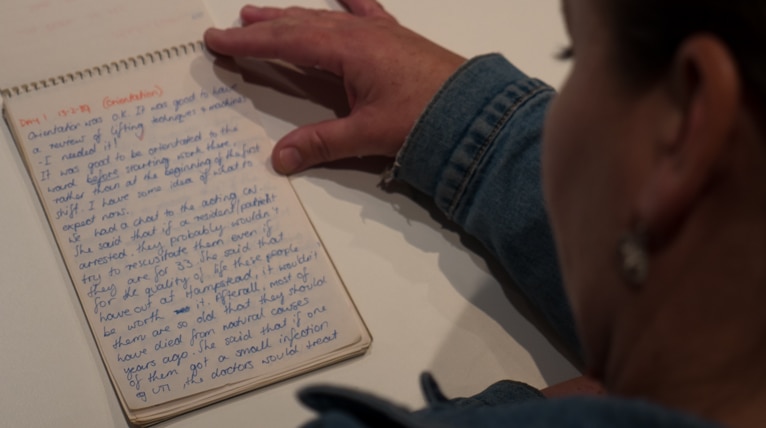 Day 1 13-2-89 (Orientation)
Orientation was O.K. It was good to have
a review of lifting techniques & machines
- I needed it!
It was good to be orientated to the
ward before starting work there,
rather than at the beginning of the first
shift. I have some idea of what to
expect now.
We had a chat to the acting CN.
She said that if a resident/patient
arrested, they probably wouldn't
try to resuscitate them even if
they are for 33. She said that
for the quality of life these people
have out at Hampstead, it wouldn't
be worth it. Afterall, most of
them are so old that they should
have died from natural causes
years ago. She said that if one
of them got a small infection
eg UTI, the doctors would treat